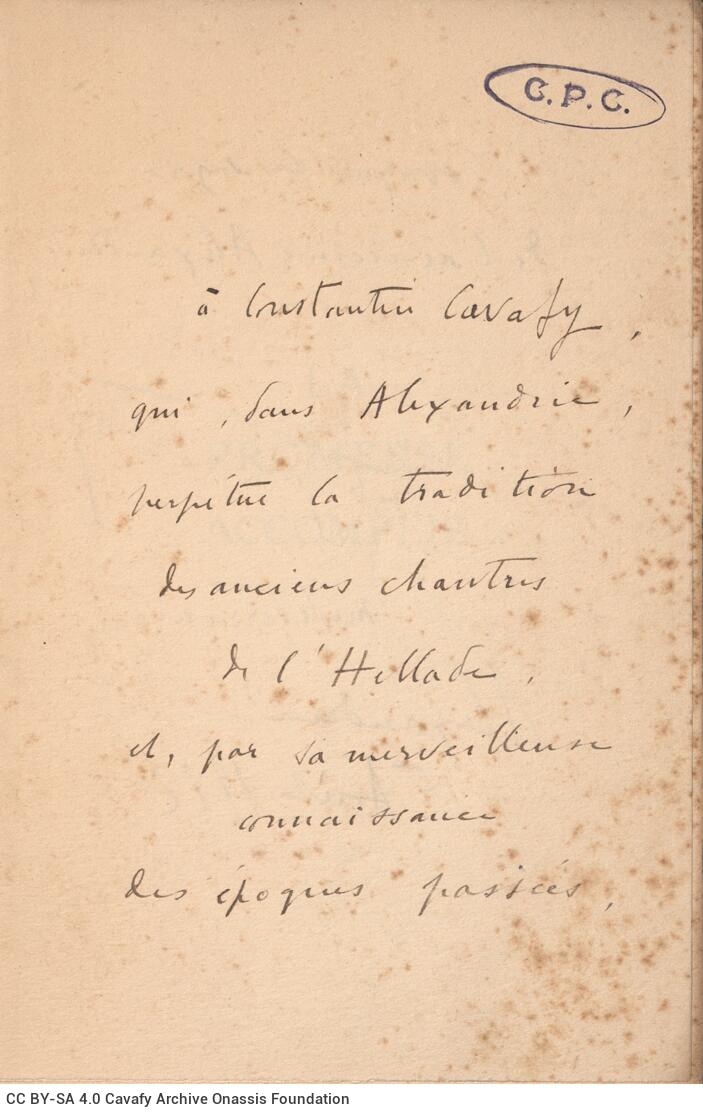 C.P.C.
à Constantin Cavafy,
qui, dans Alexandrie,
perpétue la tradition
des anciens chantres
de l'Hellade,
et, par sa merveilleuse
connaissance
des époques passées,
CC BY-SA 4.0 Cavafy Archive Onassis Foundation